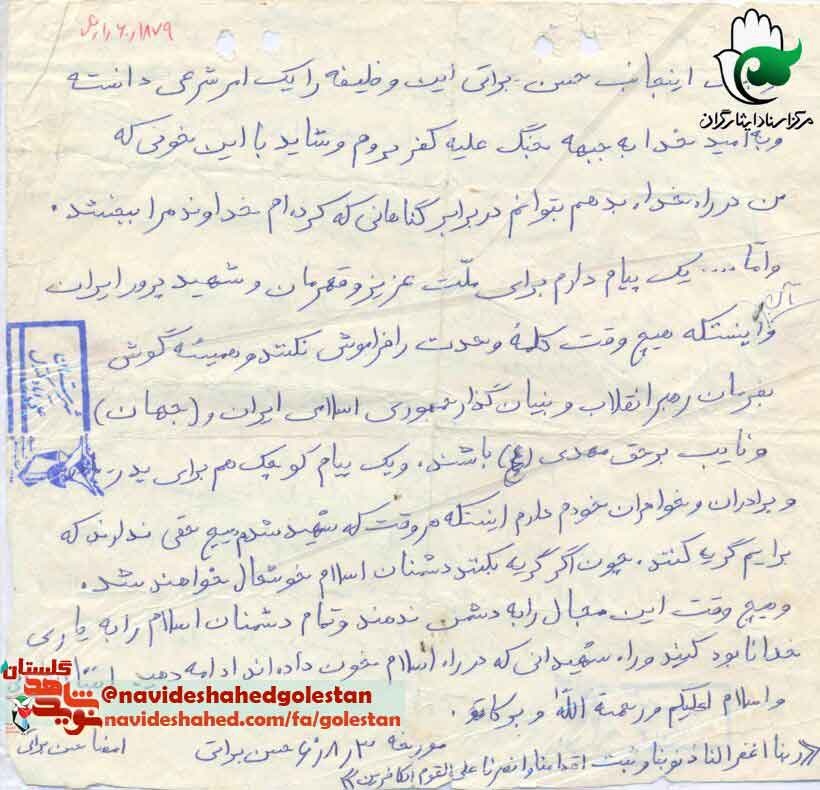 مرکز اسناد ایثارگران
اینجانب حسن براتی این وظیفه را یک امر شرعی دانسته
و به امید خدا به جبهه جنگ علیه کفر میروم و شاید با این خونی که
من در راه خدا بدهم بتوانم در برابر گناهانی که کرده ام خداوند مرا ببخشد.
و امّا .... یک پیام دارم برای ملّت عزیز و قهرمان و شهید پرور ایران
و اینستکه هیچ وقت کلمهٔ وحدت را فراموش نکنند و همیشه گوش
بفرمان رهبر انقلاب و بنیان گذار جمهوری اسلامی ایران و (جهان)
و نایب برحق مهدی (عج) باشند. و یک پیام کوچک هم برای پدر
و برادران و خواهران خودم دارم اینستکه هر وقت که شهید شدم هیچ حقی ندارند که
برایم گریه کنند. چون اگر گریه بکنند دشمنان اسلام خوشحال خواهند شد.
و هیچ وقت این مجال را به دشمن ندهند و تمام دشمنان اسلام را به یاری
خدا نابود کنند و راه شهیدانی که در راه اسلام خون داده اند ادامه دهید
و اسلام اعلیکم و رحمة اللّٰه و برکاته.
مورخه ۶۰/۸/۳ حسن براتی
امضا حسن براتی
«ربنا اغفر لنا ذنوبنا و ثبت اقدامنا و انصرنا علی القوم الکافرین»
نوید شاهد گلستان
@navideshahedgolestan
navideshahed.com/fa/golestan